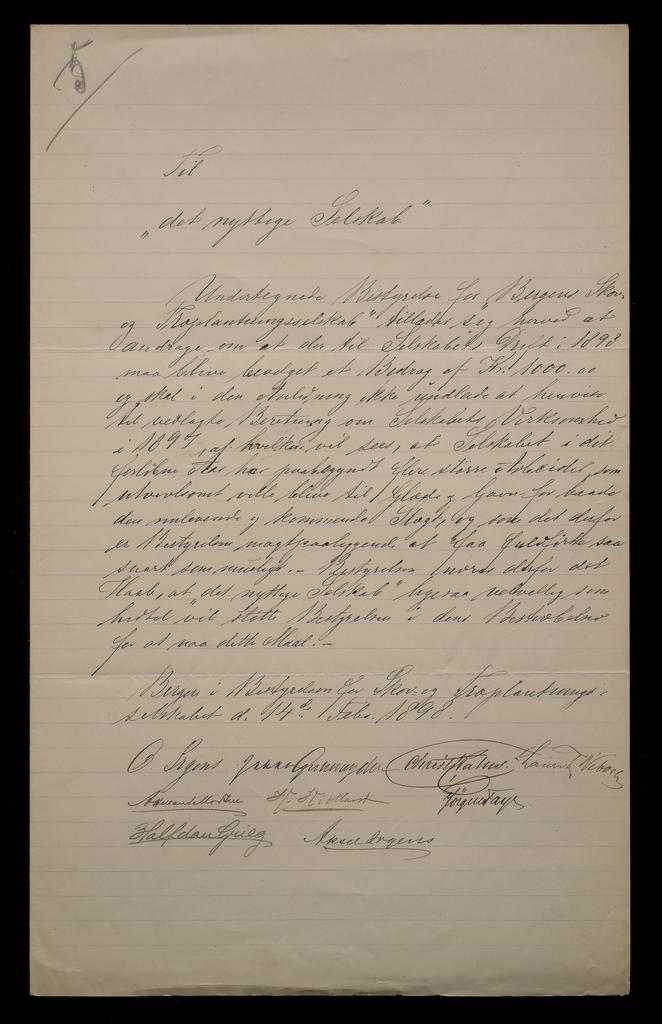 Til
„det nyttige Selskab"
Undertegnede Bestyrelse for „Bergens Skov-
og Træplantningsselskab" tillader sig herved at
andrage om at der til Selskabets Drift i 1898
maa blive bevilget et Bedrag af Kr. 1000.00
og skal i den Anledning ikke undlade at henvise
til vedlagte Beretning om Selskabets Virksomhed
i 1897, af hvilken vil sees, at Selskabet i det
forløbne Aar har paabegyndt flere større Arbeider, som
utvivlsomt ville blive til Glæde og Gavn for baade
den nulevende og kommende Slægt, og som det derfor
er Bestyrelsen magtpaaliggende at faa fuldførte saa
snart som muligt. – Bestyrelsen nærer derfor det
Haab, at „det nyttige Selskab" ligesaa velvillig som
hidtil vil støtte Bestyrelsen i dens Bestræbelser
for at naa dette Maal. –
Bergen i Bestyrelsen for Skov- og Træplantnings-
selskabet d. 14de Febr. 1898.
O. Irgens Christ Kahrs.
Jørgen Faye
Halfdan Grieg Aksel Irgens